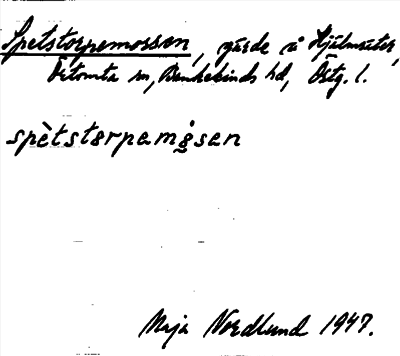 Spetstorpemossen, gärde å Hjälmsäter,
Örtomta sn, Bankekinds hd, Östg. l.
spètstørpemåsen
Maja Nordlund 1947.